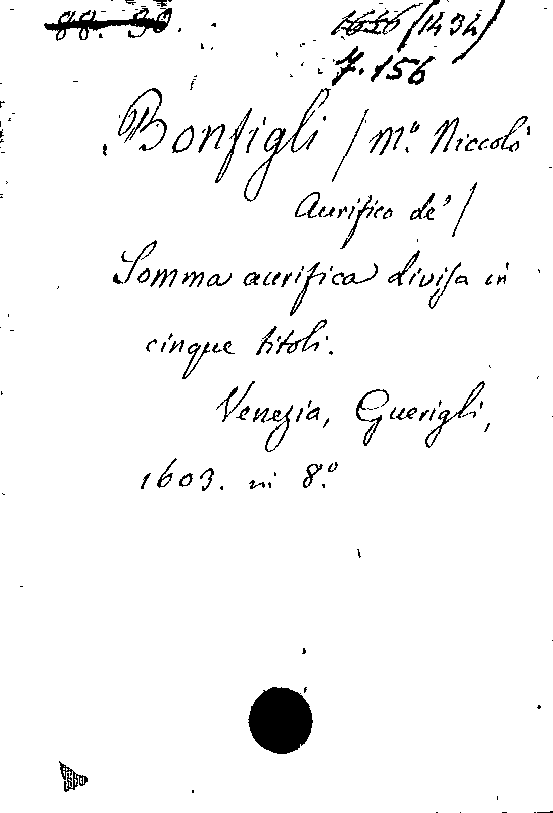 88. 30.
1616 (1434)
7.156
Bonfigli / M.º Niccolò
Aurifico de' /
Somma aurifica divisa in
cinque titoli.
Venezia, Guerigli,
1603. in 8.º